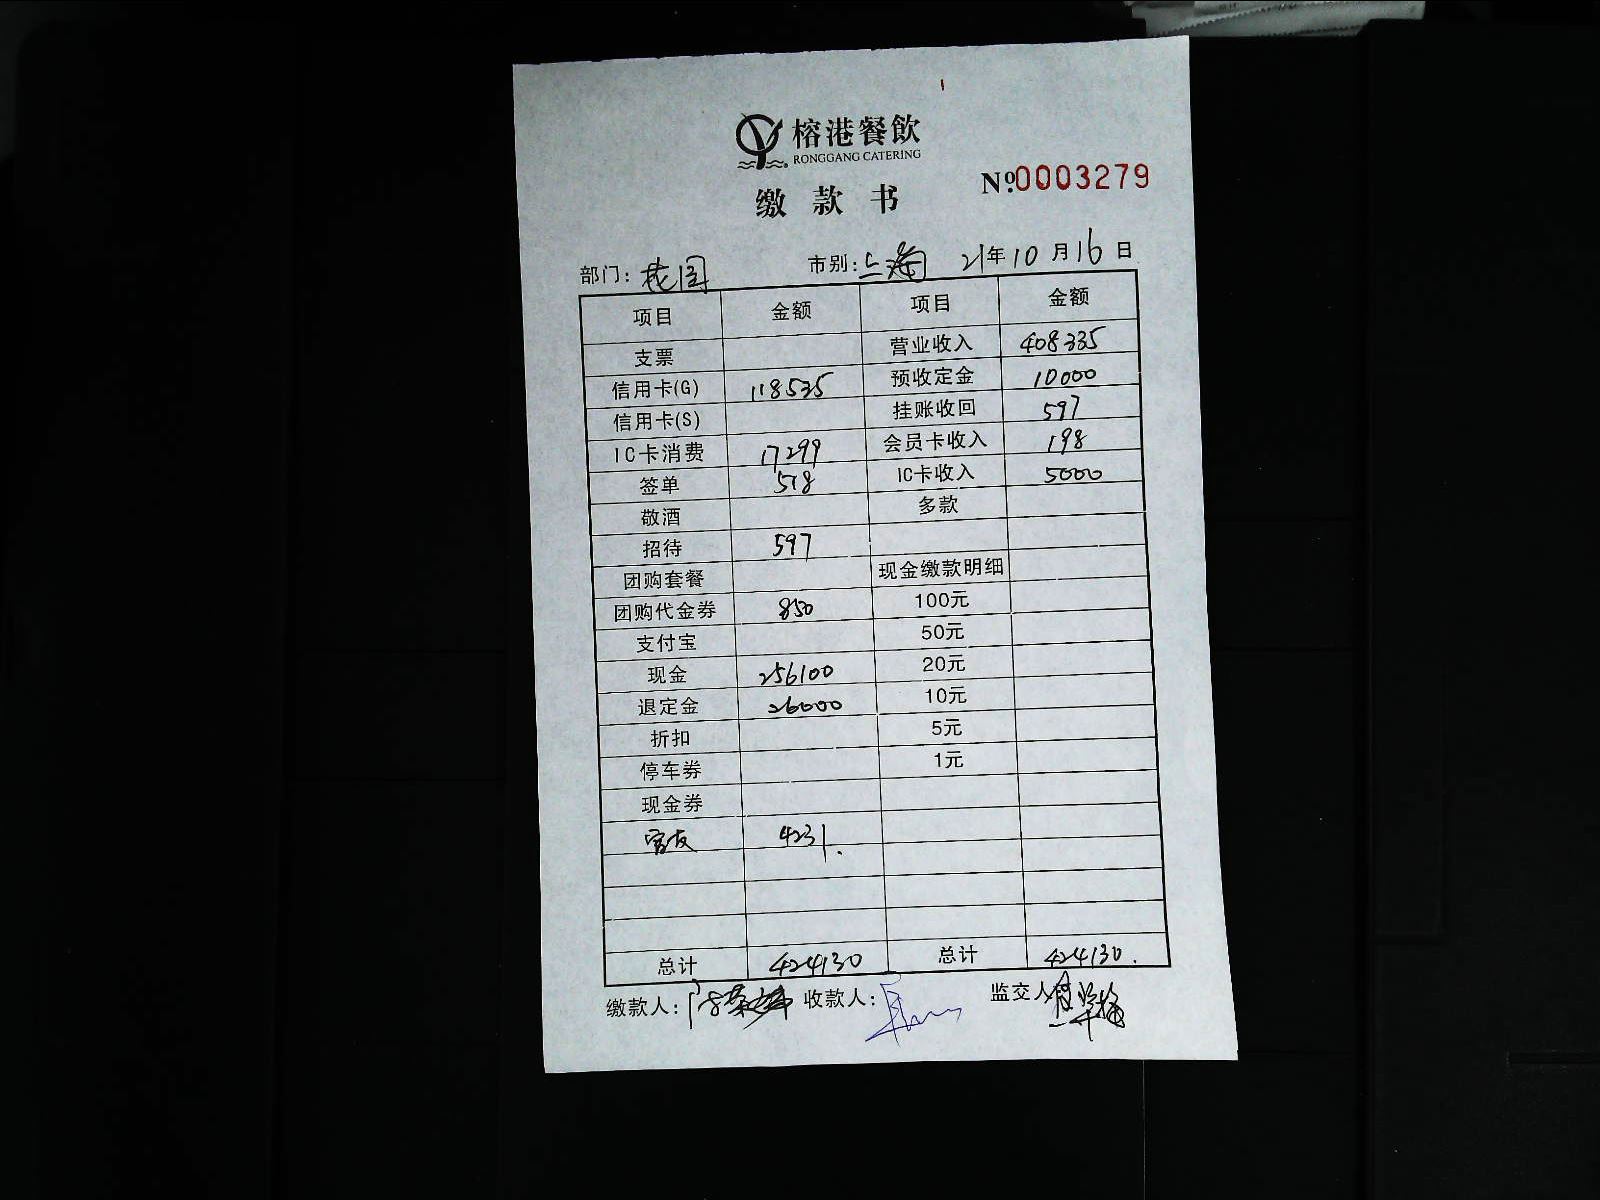 榕港餐飲
RONGGANG CATERING
缴款书
Nº:0003279
部门: 市别:上海 21年10月16日
项目 金额 项目 金额
支票 营业收入 408335
信用卡(G) 118535 预收定金 10000
信用卡(S) 挂账收回 597
IC卡消费 17299 会员卡收入 198
签单 518 IC卡收入 5000
敬酒 多款
招待 597
团购套餐 现金缴款明细
团购代金券 850 100元
支付宝 50元
现金 256100 20元
退定金 26000 10元
折扣 5元
停车券 1元
现金券
4231.
总计 424130 总计 424130.
缴款人: 收款人: 监交人